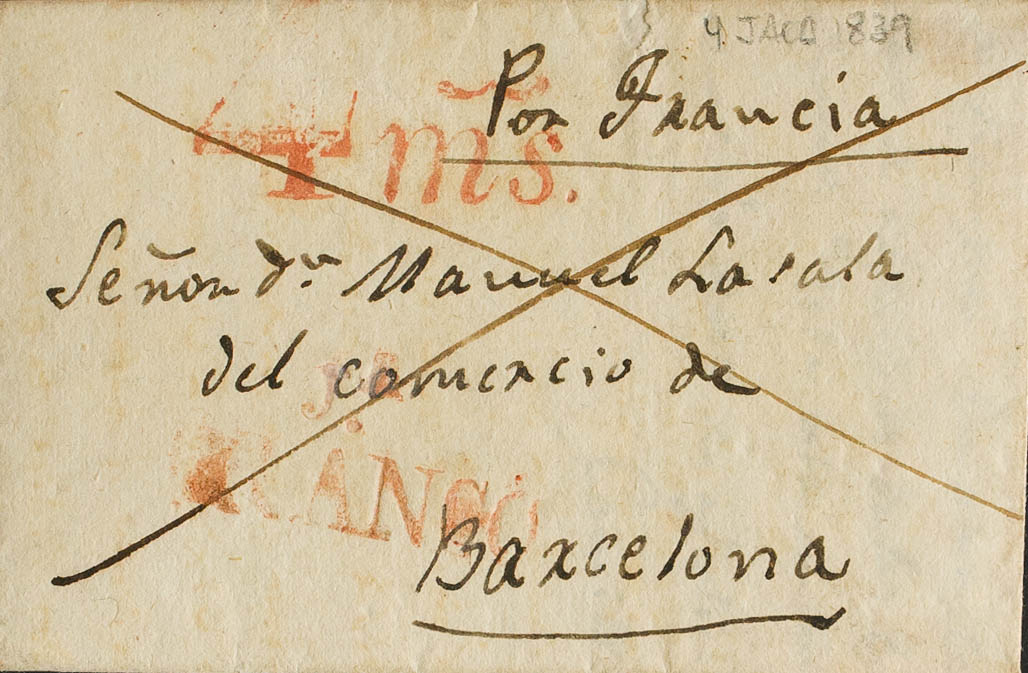 4 JACA 1839
Por Francia
4 ms.
Señor dn. Manuel Lasala
del comercio de
FRANCO
Barcelona